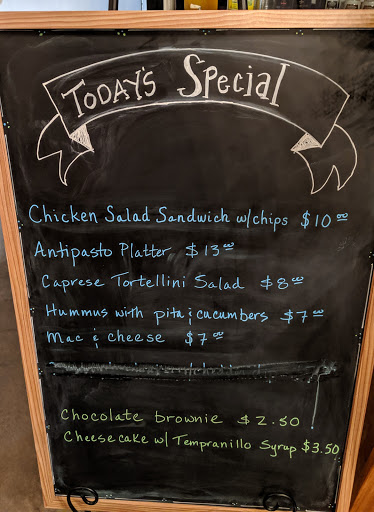 TODAY'S Special
Chicken Salad Sandwich w/chips $10.00
Antipasto Platter $13.00
Caprese Tortellini Salad $8.00
Hummus with pita & cucumbers $7.00
Mac & cheese $7.00
Chocolate brownie $2.50
Cheesecake w/ Tempranillo Syrup $3.50